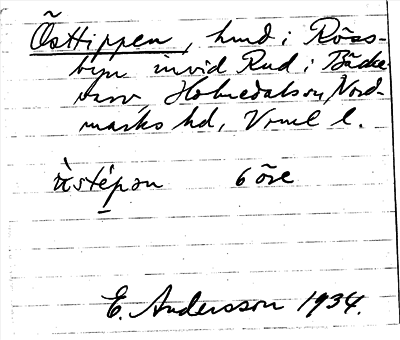 Östtippen, hmd i Röss-
byn invid Rud i Bäcke
varv, Holmedals sn, Nord-
marks hd, Vrml l.
östépən 6 öre
E. Andersson 1934.